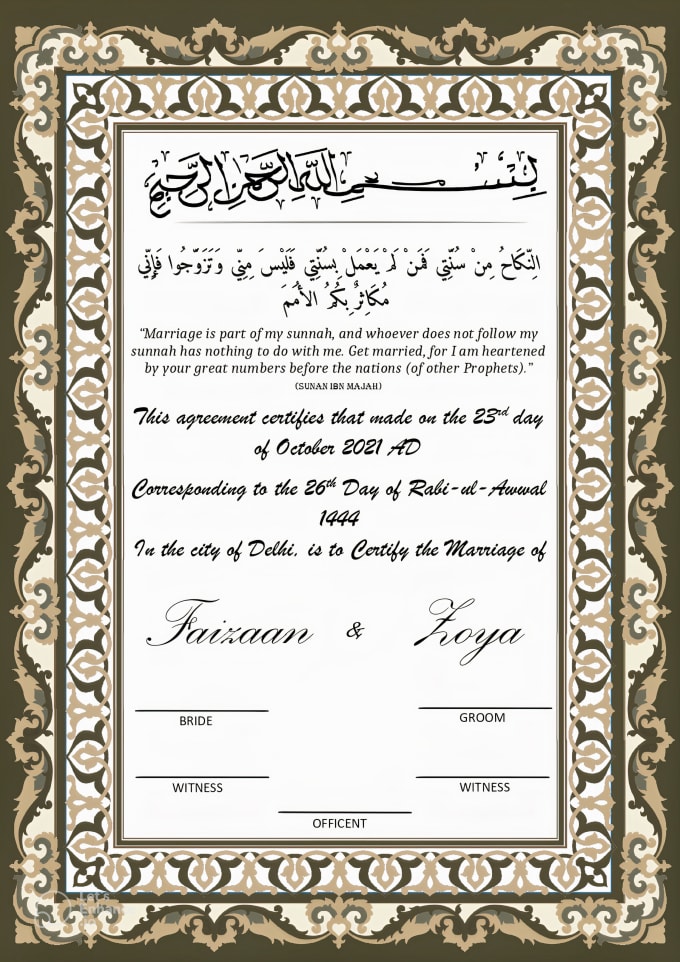 بِسْمِ اللَّهِ الرَّحْمَٰنِ الرَّحِيمِ
النِّكَاحُ مِنْ سُنَّتِي فَمَنْ لَمْ يَعْمَلْ بِسُنَّتِي فَلَيْسَ مِنِّي وَتَزَوَّجُوا فَإِنِّي
مُكَاثِرٌ بِكُمُ الأُمَمَ
“Marriage is part of my sunnah, and whoever does not follow my
sunnah has nothing to do with me. Get married, for I am heartened
by your great numbers before the nations (of other Prophets).”
(SUNAN IBN MAJAH)
This agreement certifies that made on the 23rd day
of October 2021 AD
Corresponding to the 26th Day of Rabi-ul-Awwal
1444
In the city of Delhi, is to Certify the Marriage of
Faizaan & Zoya
BRIDE GROOM
WITNESS WITNESS
OFFICENT